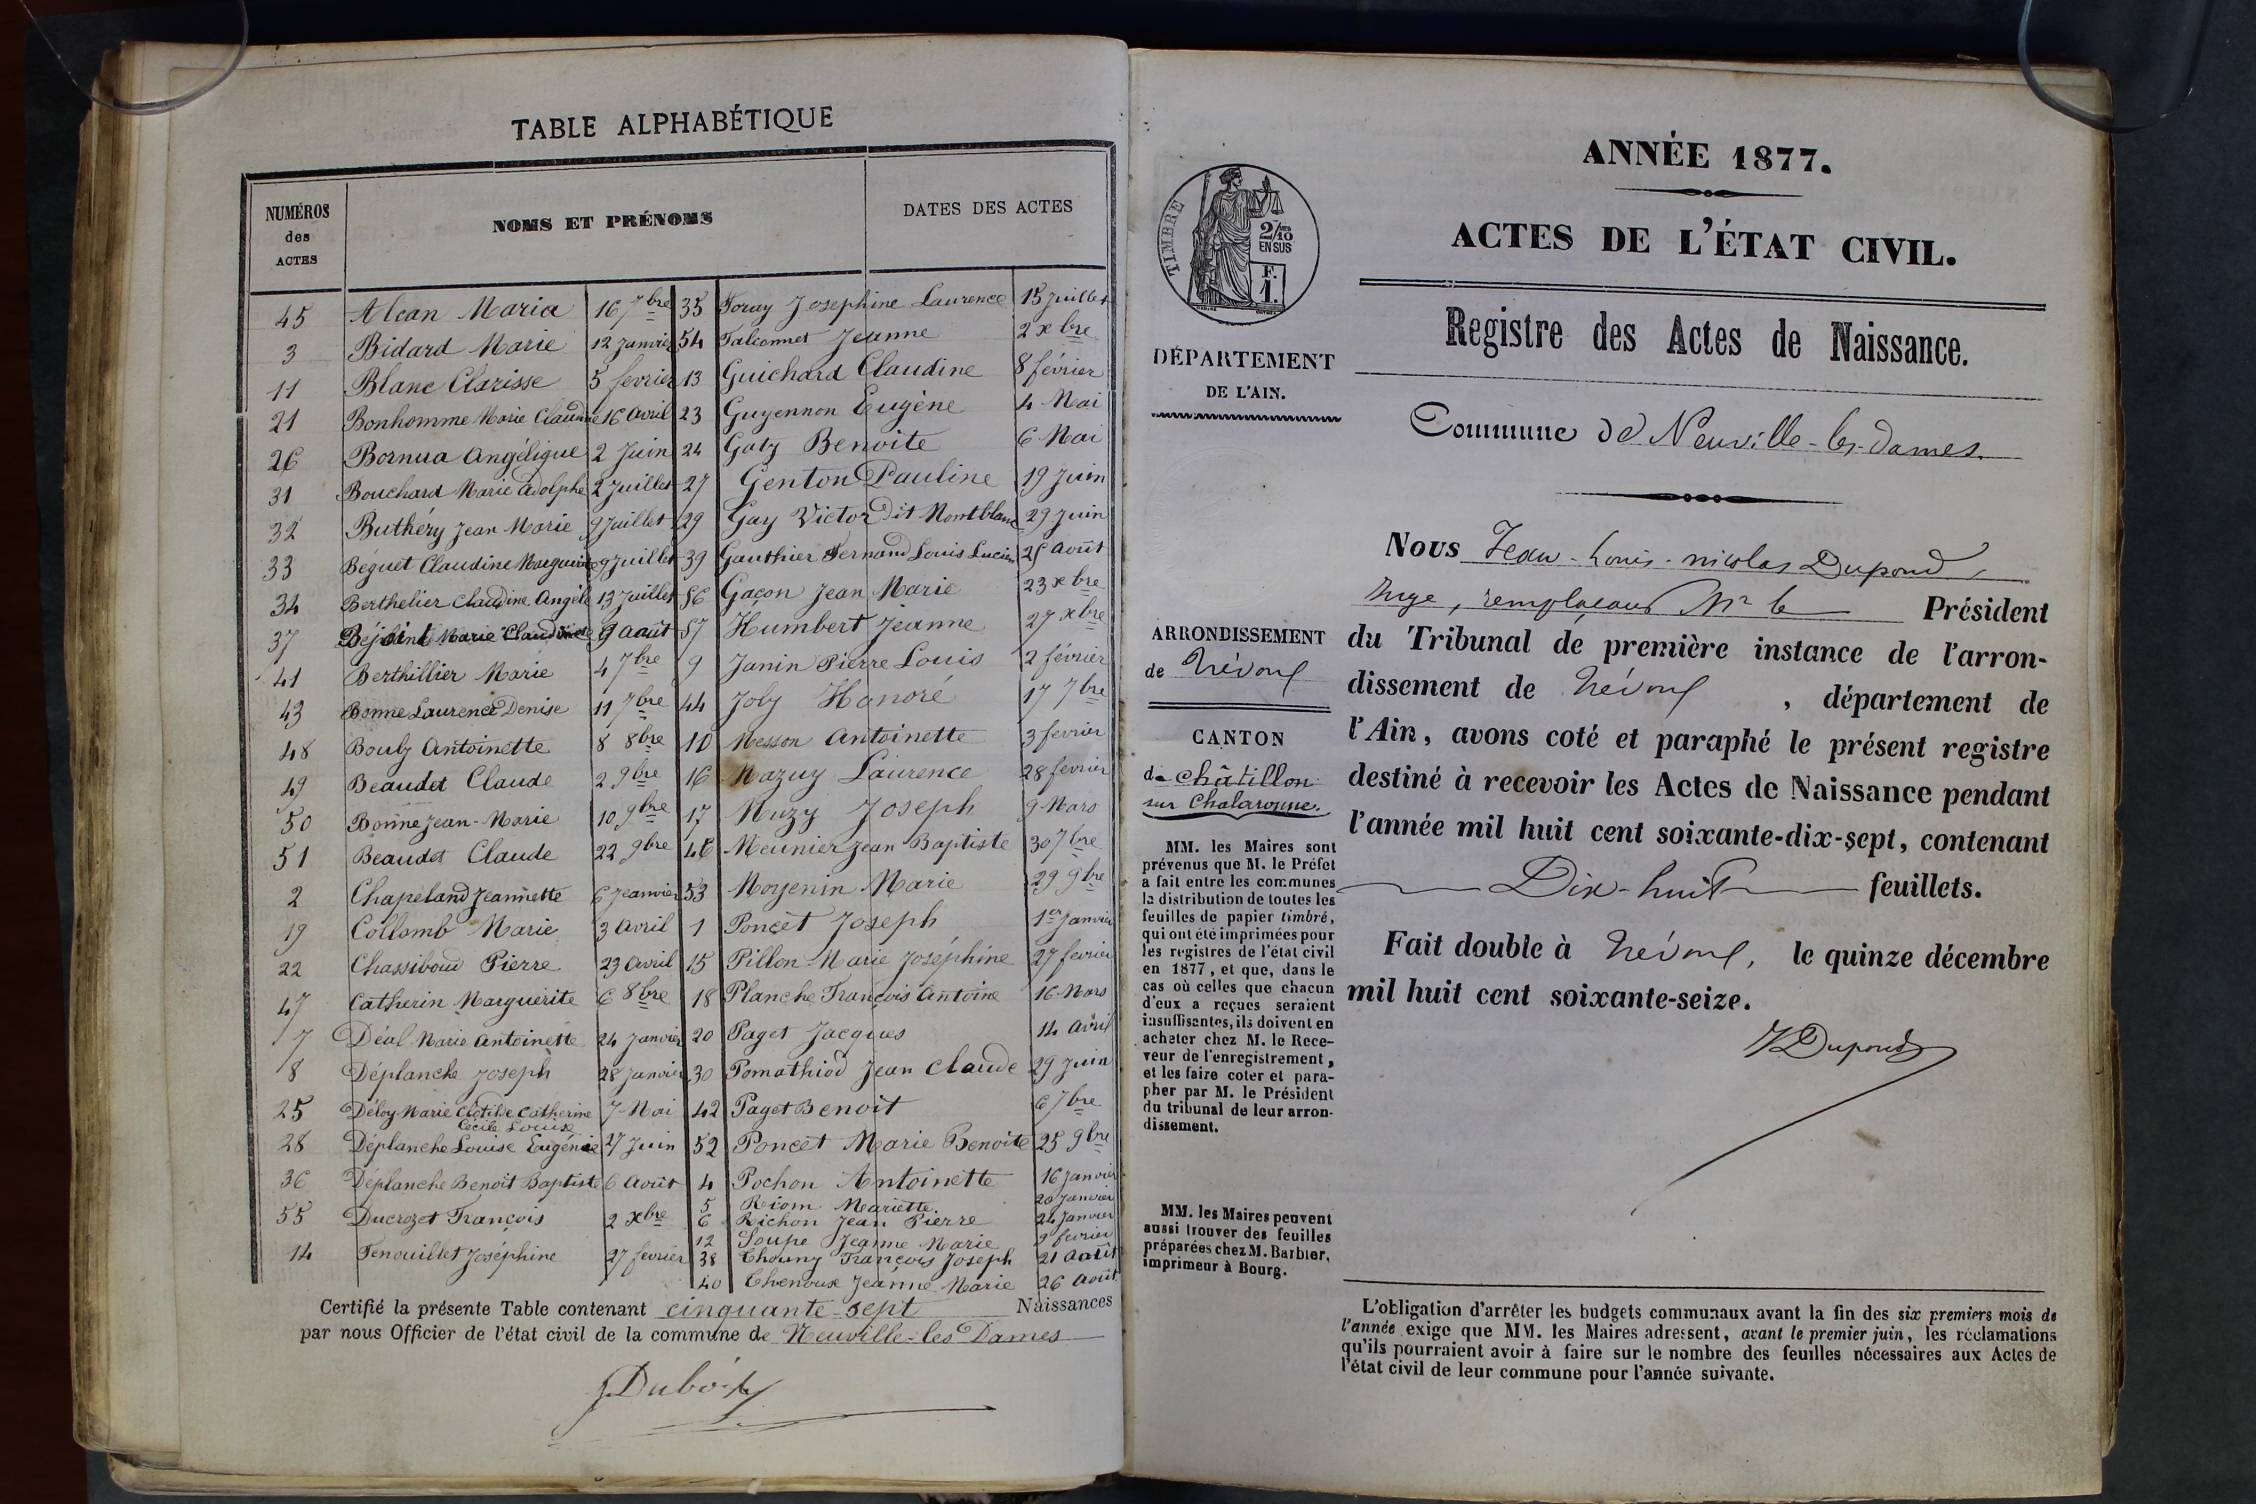 TABLE ALPHABÉTIQUE
NUMÉROS
des
ACTES
NOMS ET PRÉNOMS
DATES DES ACTES
45 Alcan Maria 16 7bre 35 Foray Josephine Laurence 15 Juillet
3 Bidard Marie 12 Janvier 54 Falconnet Jeanne 2 xbre
11 Blanc Clarisse 5 fevrier 13 Guichard Claudine 8 février
21 Bonhomme Marie Claudine 16 Avril 23 Guyennon Eugène 4 Mai
26 Bornua Angélique 2 Juin 24 Gatz Benoite 6 Mai
31 Bouchard Marie Adolphe 2 Juillet 27 Genton Pauline 19 Juin
32 Buthéry Jean Marie 9 Juillet 29 Gay Victor Dit Montblanc 29 Juin
33 Béguet Claudine Marguerite 9 Juillet 39 Gauthier Fernand Louis Lucien 25 Août
34 Berthelier Claudine Angèle 13 Juillet 56 Gaçon Jean Marie 23 xbre
37 Marie Claudine 9 Août 57 Humbert Jeanne 27 xbre
41 Berthillier Marie 4 7bre 9 Janin Pierre Louis 2 février
43 Bonne Laurence Denise 11 7bre 44 Joly Honoré 17 7bre
48 Bouly Antoinette 8 8bre 10 Messon Antoinette 3 fevrier
49 Beaudet Claude 2 9bre 16 Mazuy Laurence 28 fevrier
50 Bonne Jean-Marie 10 9bre 17 Muzy Joseph 9 Mars
51 Beaudet Claude 22 9bre 46 Meunier Jean Baptiste 30 7bre
2 Chapeland Jeannette 6 Jeanvier 53 Moyenin Marie 29 9bre
19 Collomb Marie 3 Avril 1 Poncet Joseph 1er Janvier
22 Chassiboud Pierre 23 Avril 15 Pillon Marie Joséphine 27 fevrier
47 Catherin Marguerite 6 8bre 18 Planche François Antoine 16 Mars
7 Déal Marie Antoinette 24 Janvier 20 Paget Jacques 14 Avril
8 Déplanche Joseph 28 Janvier 30 Pomathiod Jean Claude 29 Juin
25 Déloy Marie Clotilde Catherine 7 Mai 42 Paget Benoit 6 7bre
Cécile Louise
28 Déplanche Louise Eugénie 27 Juin 52 Poncet Marie Benoite 25 9bre
36 Déplanche Benoit Baptiste 6 Août 4 Pochon Antoinette 16 Janvier
5 Riom Mariette. 20 Janvier
55 Ducrozet François 2 xbre 6 Richon Jean Pierre 24 Janvier
12 Soupe Jeanne Marie 9 fevrier
14 Fenouillet Joséphine 27 fevrier 38 Thouny François Joseph 21 Août
40 Thenoux Jeanne Marie 26 Août
Certifié la présente Table contenant cinquante-sept Naissances
par nous Officier de l'état civil de la commune de Neuville-les Dames
ANNÉE 1877.
ACTES DE L'ÉTAT CIVIL.
TIMBRE
2/10
EN SUS
F.
1.
DÉPARTEMENT
DE L'AIN.
Registre des Actes de Naissance.
Commune de Neuville-les-Dames.
Nous Jean-Louis-Nicolas Dupond,
Juge, remplaçant Mr le Président
du Tribunal de première instance de l'arron-
dissement de Trévoux, département de
l'Ain, avons coté et paraphé le présent registre
destiné à recevoir les Actes de Naissance pendant
l'année mil huit cent soixante-dix-sept, contenant
Dix-huit feuillets.
Fait double à Trévoux, le quinze décembre
mil huit cent soixante-seize.
Dupond
ARRONDISSEMENT
de Trévoux
CANTON
de Châtillon
sur Chalaronne.
MM. les Maires sont
prévenus que M. le Préfet
a fait entre les communes
la distribution de toutes les
feuilles de papier timbré,
qui ont été imprimées pour
les registres de l'état civil
en 1877, et que, dans le
cas où celles que chacun
d'eux a reçues seraient
insuffisantes, ils doivent en
acheter chez M. le Rece-
veur de l'enregistrement,
et les faire coter et para-
pher par M. le Président
du tribunal de leur arron-
dissement.
MM. les Maires peuvent
aussi trouver des feuilles
préparées chez M. Barbier,
imprimeur à Bourg.
L'obligation d'arrêter les budgets communaux avant la fin des six premiers mois de
l'année exige que MM. les Maires adressent, avant le premier juin, les réclamations
qu'ils pourraient avoir à faire sur le nombre des feuilles nécessaires aux Actes de
l'état civil de leur commune pour l'année suivante.